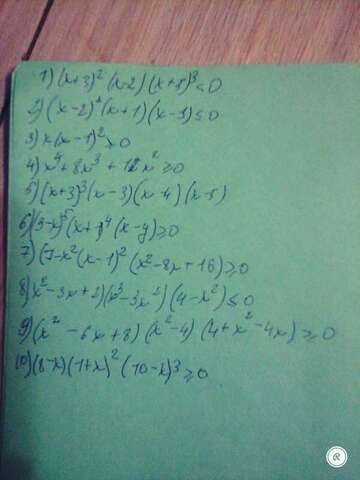 1) (x+3)² (x-2) (x+5)³ ≤ 0
2) (x-2)² (x+1) (x-3) ≤ 0
3) x(x-1)² > 0
4) x⁴ + 8x³ + 12x² ≥ 0
5) (x+3)³ (x-3) (x-4) (x-5)
6) (5-x)³ (x+1)⁴ (x-9) ≥ 0
7) (7-x² (x-1)² (x²-8x+16) ≥ 0
8) x²-3x+2) (x³-3x²) (4-x²) ≤ 0
9) (x²-6x+8) (x²-4) (4+x²-4x) ≥ 0
10) (8-x) (1+x)² (10-x)³ ≥ 0
R